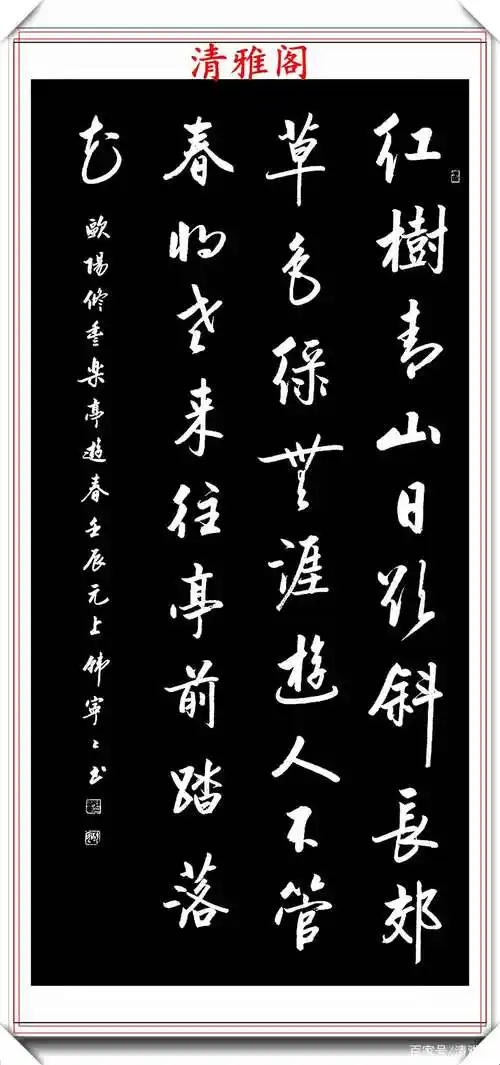 清雅阁
红樹青山日欲斜長郊
草色緑無涯遊人不管
春將老来往亭前踏落
花
歐陽修豐樂亭遊春壬辰元上韓寧寧书
百家号/清雅